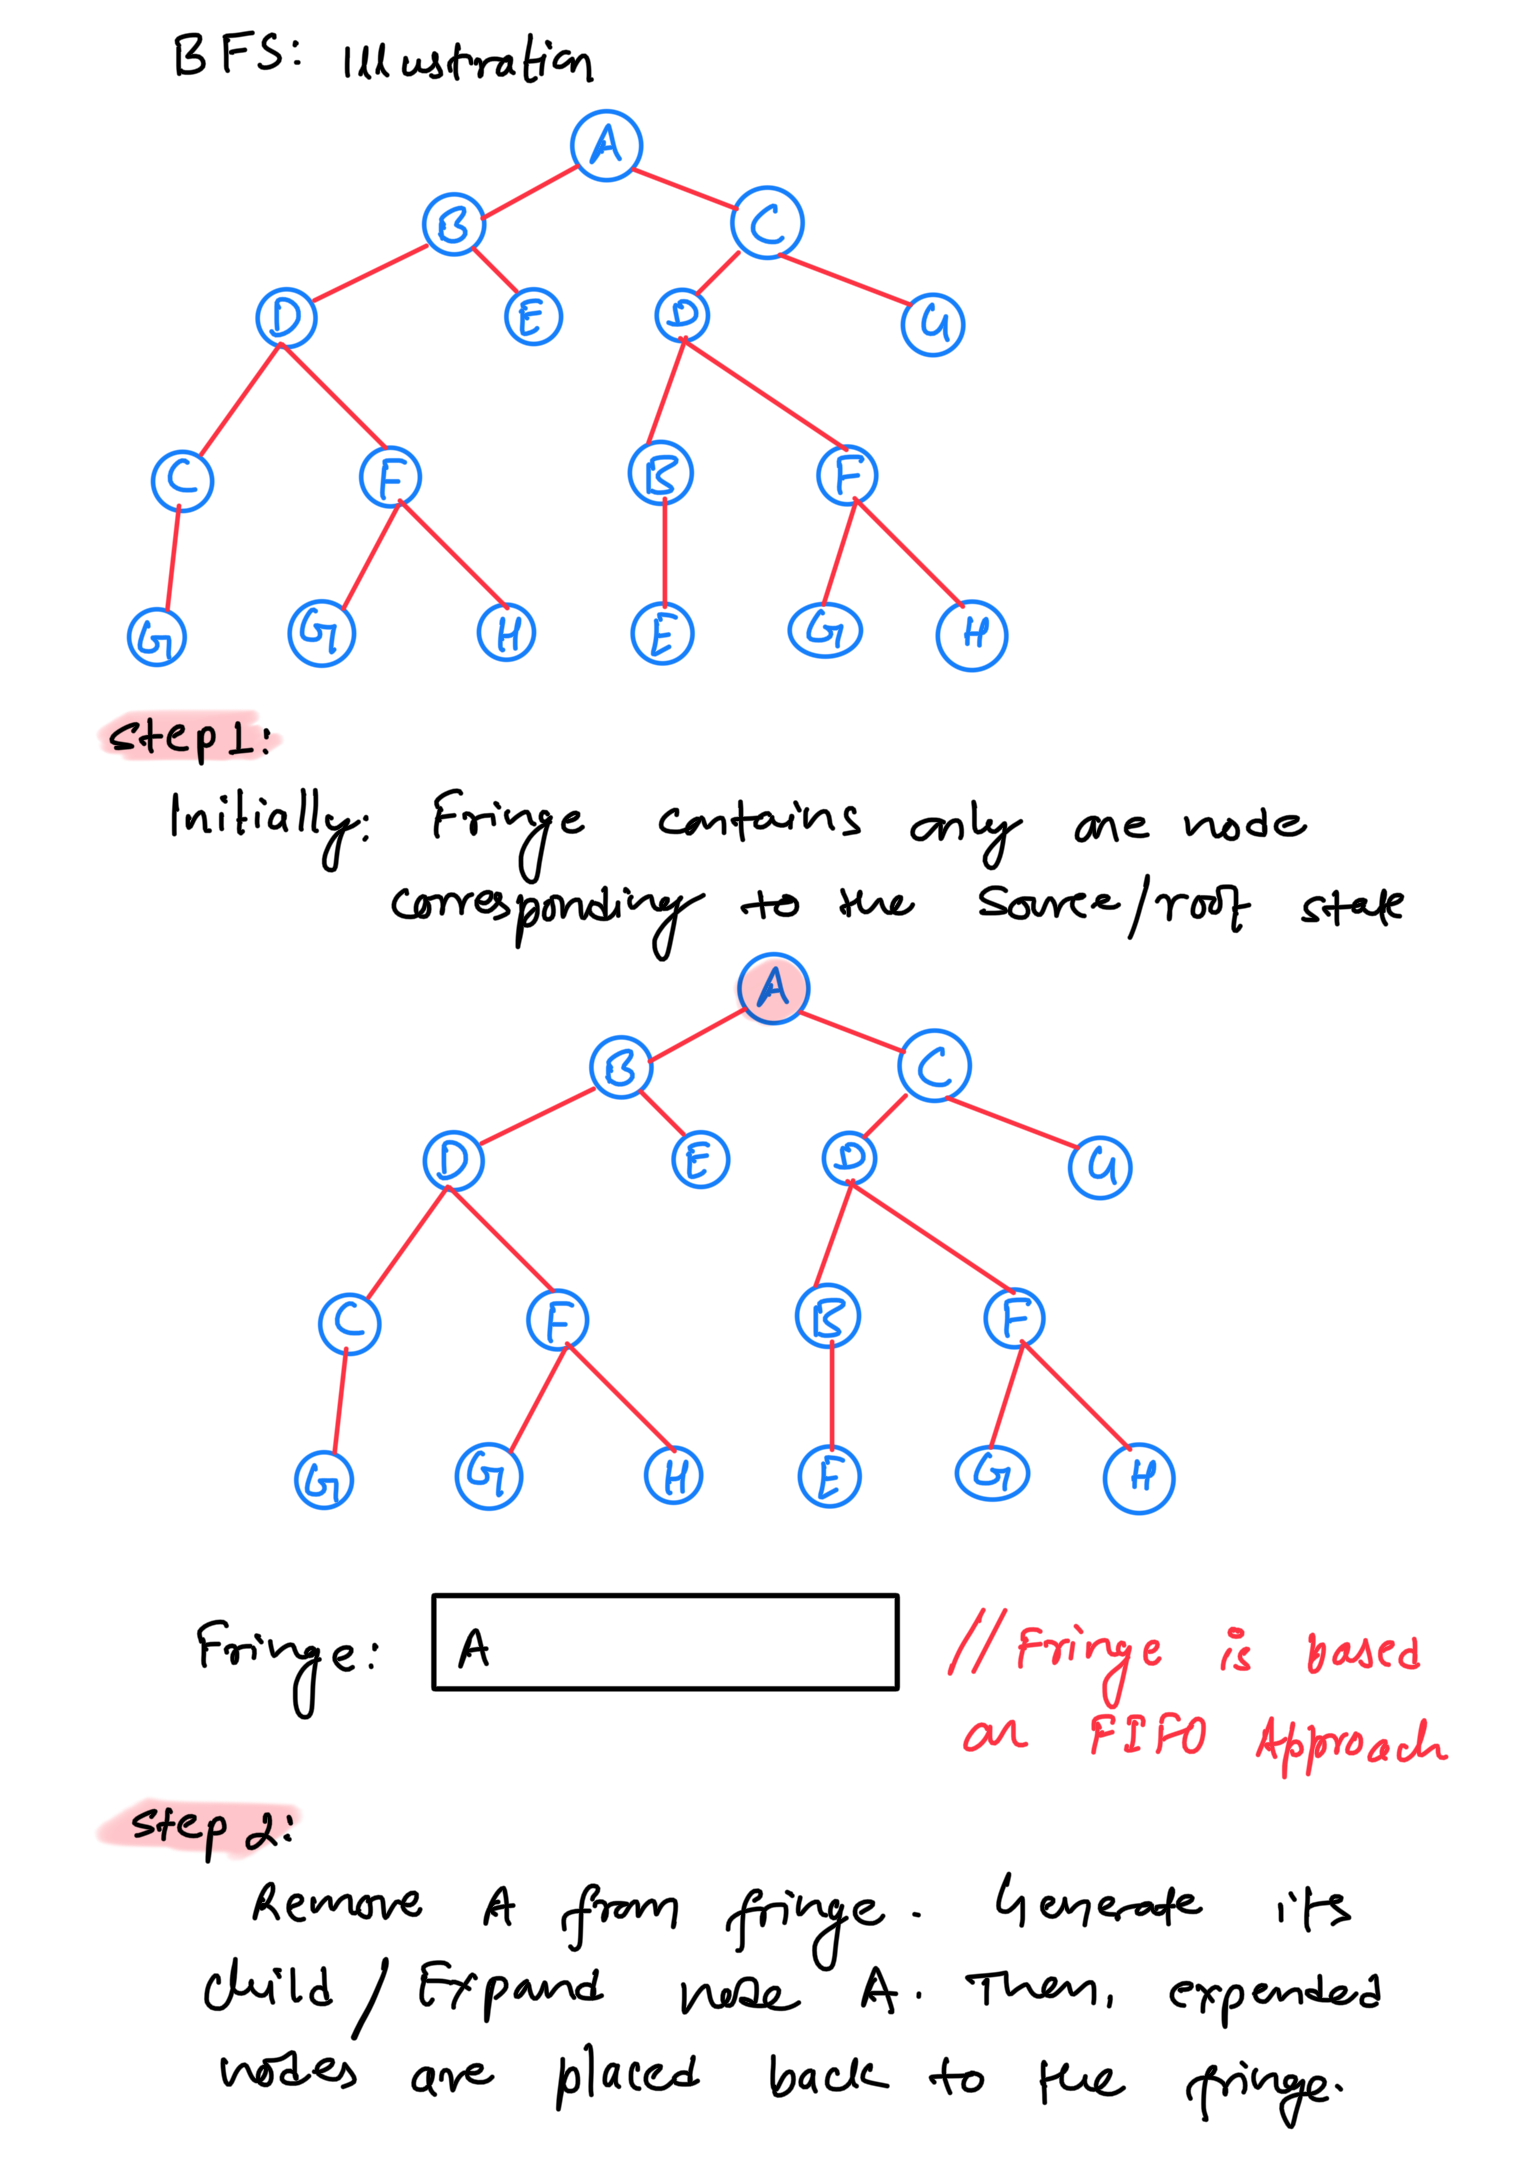 BFS: Illustration
A
B C
D E D G
C F B F
G G H E G H
Step 1:
Initially: Fringe contains only one node
corresponding to the Source/root state
A
B C
D E D G
C F B F
G G H E G H
Fringe: A // Fringe is based
on FIFO Approach
Step 2:
Remove A from fringe. Generate its
child / Expand node A. Then, expended
nodes are placed back to the fringe.